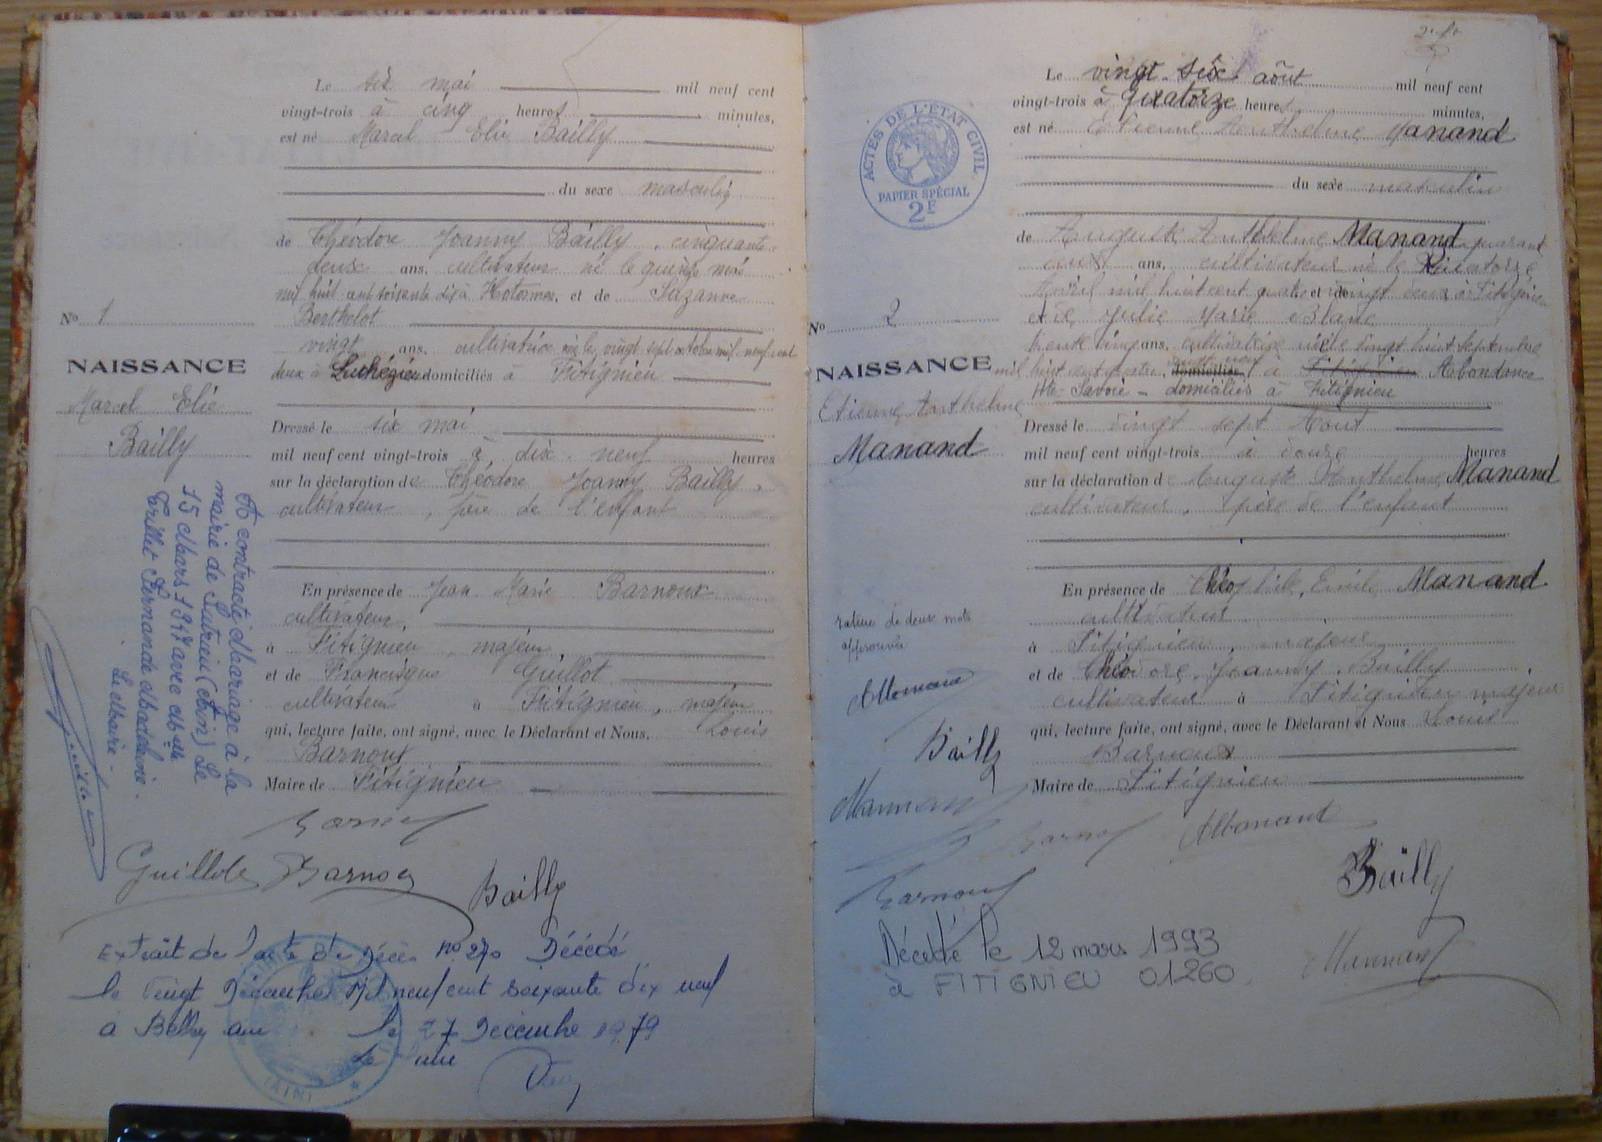 Le six mai mil neuf cent
vingt-trois à cinq heures minutes,
est né Marcel Elie Bailly
du sexe masculin
de Théodore Joanny Bailly, cinquante
deux ans, cultivateur né le quinze mai
mil huit cent soixante dix à Hotonnes, et de Suzanne
Berthelot
vingt ans, cultivatrice née le vingt sept octobre mil neuf cent
deux à domiciliés à Fitignieu
Nº 1
NAISSANCE
Marcel Elie
Bailly
Dressé le six mai
mil neuf cent vingt-trois à dix-neuf heures
sur la déclaration de Théodore Joanny Bailly,
cultivateur, père de l'enfant
En présence de Jean Marie Barnoux
cultivateur,
à Fitignieu, majeur
et de Francisque Guillot
cultivateur à Fitignieu, majeur
qui, lecture faite, ont signé, avec le Déclarant et Nous, Louis
Barnoux
Maire de Fitignieu
A contracté Mariage à la
mairie de (Ain) Le
15 Mars 1947 avec Melle
Fernande Madeleine.
Le Maire.
Guillot Barnoux Bailly
Extrait de l'acte de Décès nº 270 Décédé
le Vingt Décembre Mil neuf cent soixante dix neuf
à Belley Ain le 27 Décembre 1979
Le
2
Le vingt-six août mil neuf cent
vingt-trois à quatorze heures minutes,
est né Etienne Anthelme Manand
du sexe masculin
ACTES DE L'ÉTAT CIVIL
PAPIER SPÉCIAL
2F
de Auguste Anthelme Manand, quarante
ans, cultivateur né le quatorze
Avril mil huit cent quatre et de vingt deux à Fitignieu
et de Julie Marie Blanc
trente cinq ans, cultivatrice née le vingt huit Septembre
mil huit cent quatre vingt domiciliés à Fitignieu Abondance
Hte Savoie - domiciliés à Fitignieu
Nº 2
NAISSANCE
Etienne Anthelme
Manand
Dressé le vingt sept Aout
mil neuf cent vingt-trois à douze heures
sur la déclaration de Auguste Anthelme Manand
cultivateur, père de l'enfant
En présence de Théophile, Emile Manand
cultivateur
à Fitignieu, majeur
et de Théodore, Joanny, Bailly
cultivateur à Fitignieu majeur
qui, lecture faite, ont signé, avec le Déclarant et Nous Louis
Barnoux
Maire de Fitignieu
rature de deux mots
approuvée
Manand
Bailly
Manand
Barnoux Manand
Barnoux
Bailly
Manand
Décédé le 12 mars 1993
à FITIGNIEU 01260